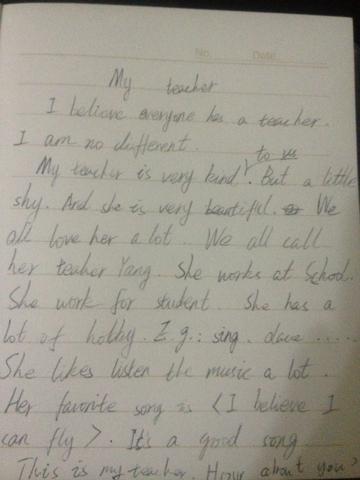 No. Date
My teacher
I believe everyone has a teacher.
I am no different.
to us
My teacher is very kind. But a little
shy. And she is very beautiful. We
all love her a lot. We all call
her teacher Yang. She works at School.
She work for student. She has a
lot of hobby. E.g.: sing. dance ......
She likes listen the music a lot.
Her favorite song is <I believe I
can fly>. It's a good song.
This is my teacher. How about you?